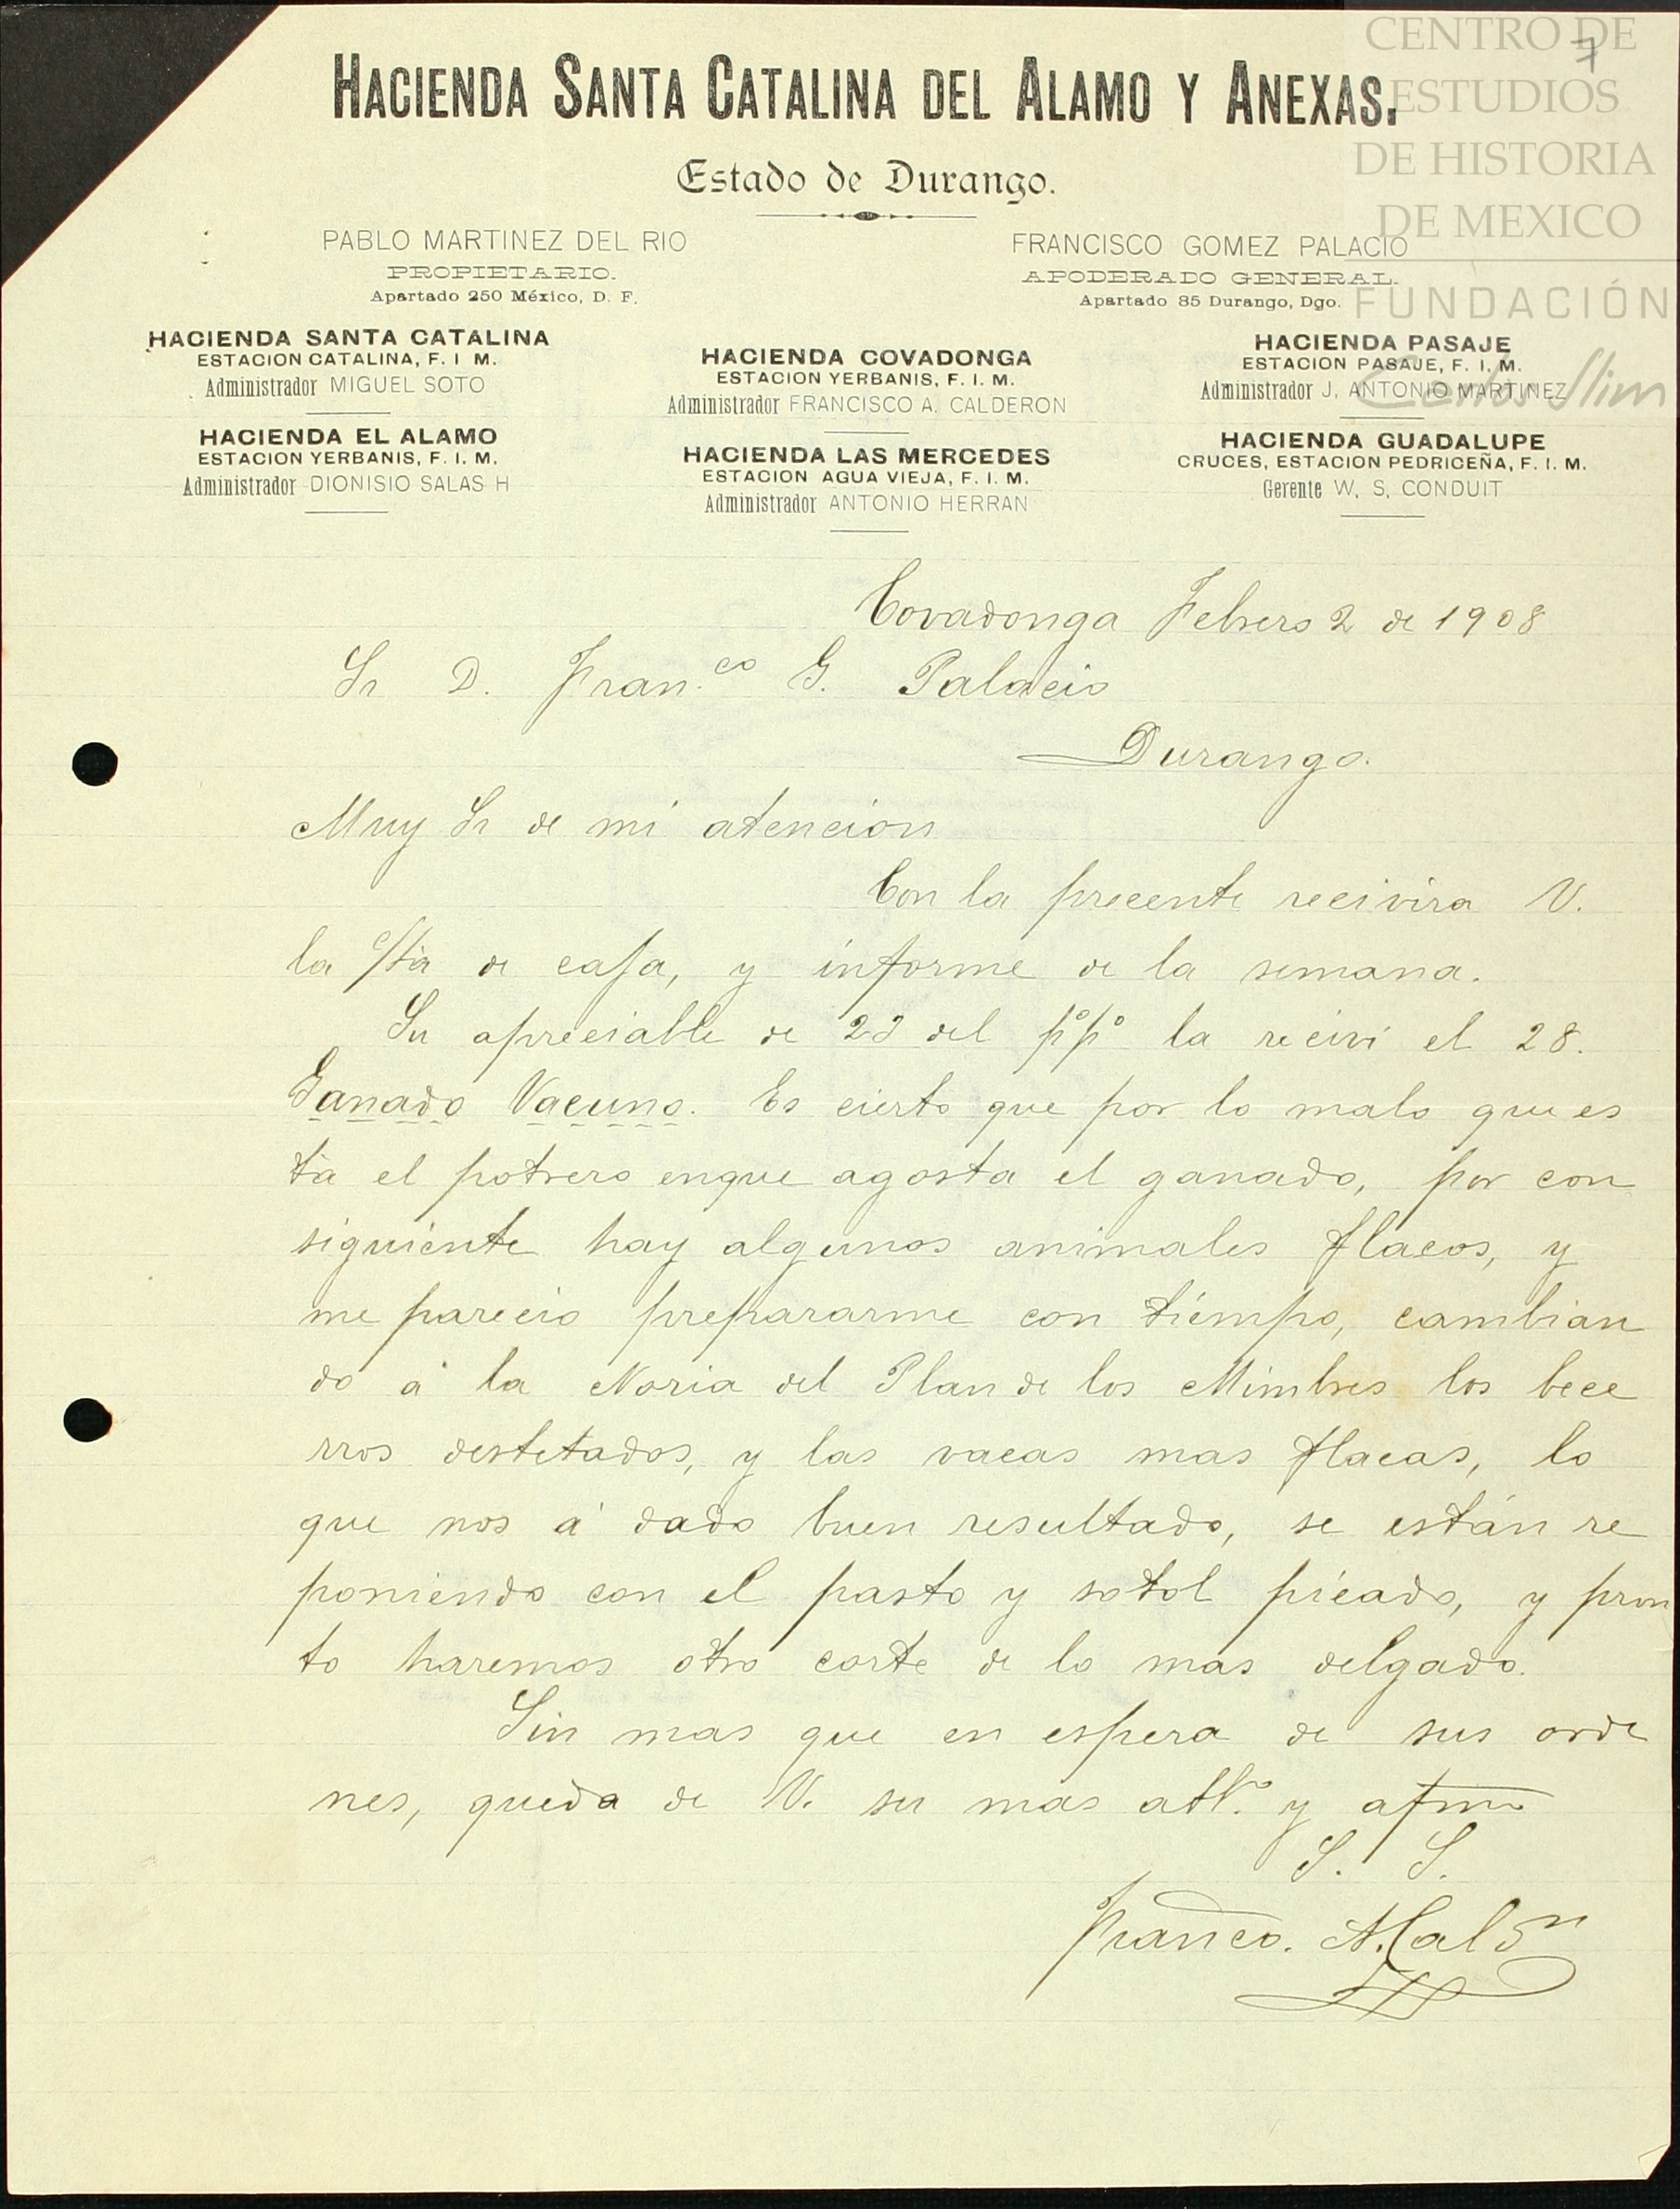 CENTRO DE
ESTUDIOS
DE HISTORIA
DE MEXICO
FUNDACIÓN
Carlos Slim
7
HACIENDA SANTA CATALINA DEL ALAMO Y ANEXAS.
Estado de Durango.
PABLO MARTINEZ DEL RIO
PROPIETARIO.
Apartado 250 México, D. F.
FRANCISCO GOMEZ PALACIO
APODERADO GENERAL.
Apartado 85 Durango, Dgo.
HACIENDA SANTA CATALINA
ESTACION CATALINA, F. I M.
Administrador MIGUEL SOTO
HACIENDA EL ALAMO
ESTACION YERBANIS, F. I. M.
Administrador DIONISIO SALAS H
HACIENDA COVADONGA
ESTACION YERBANIS, F. I. M.
Administrador FRANCISCO A. CALDERON
HACIENDA LAS MERCEDES
ESTACION AGUA VIEJA, F. I. M.
Administrador ANTONIO HERRAN
HACIENDA PASAJE
ESTACION PASAJE, F. I. M.
Administrador J, ANTONIO MARTINEZ
HACIENDA GUADALUPE
CRUCES, ESTACION PEDRICEÑA, F. I. M.
Gerente W, S, CONDUIT
Covadonga Febrero 2 de 1908
Sr D. Fran.co G. Palacio
Durango.
Muy Sr de mi atencion
Con la precente recivira V.
la c/ta de caja, y informe de la semana.
Su apreciable de del pºpº la recivi el 28.
Ganado Vacuno. Es cierto que por lo malo que es
tà el potrero enque agosta el ganado, por con
siguiente hay algunos animales flacos, y
me parecio prepararme con tiempo, cambian
do á la Noria del Plan de los Mimbres los bece
rros destetados, y las vacas mas flacas, lo
que nos á dado buen resultado, se están re
poniendo con el pasto y sotol picado, y pron
to haremos otro corte de lo mas delgado.
Sin mas que en espera de sus orde
nes, queda de V. su mas att.º y afmo
S. S.
Franco. A. Calon